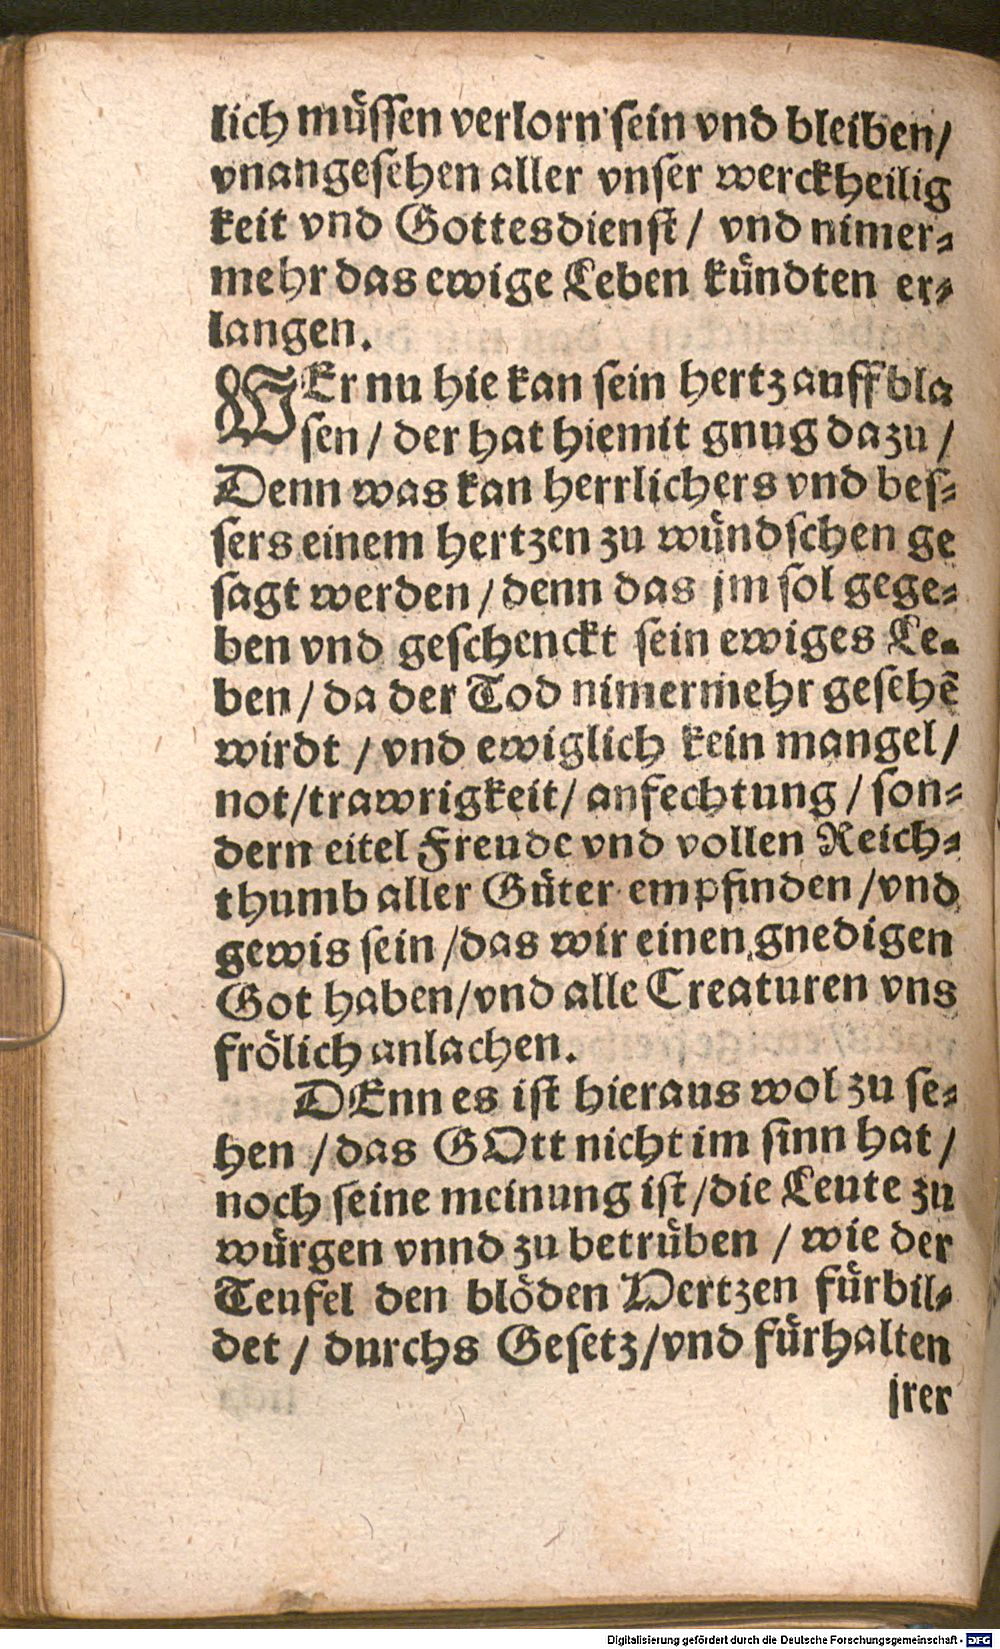 lich müssen verlorn sein vnd bleiben/
vnangesehen aller vnser werckheilig
keit vnd Gottesdienst/ vnd nimer⸗
mehr das ewige Leben kündten er⸗
langen.
WEr nu hie kan sein hertz auffbla
sen/ der hat hiemit gnug dazu/
Denn was kan herrlichers vnd bes⸗
sers einem hertzen zu wündschen ge
sagt werden/ denn das jm sol gege⸗
ben vnd geschenckt sein ewiges Le⸗
ben/ da der Tod nimermehr gesehẽ
wirdt/ vnd ewiglich kein mangel/
not/trawrigkeit/ anfechtung/ son⸗
dern eitel Freude vnd vollen Reich⸗
thumb aller Güter empfinden/vnd
gewis sein/das wir einen gnedigen
Got haben/vnd alle Creaturen vns
frölich anlachen.
DEnn es ist hieraus wol zu se⸗
hen/das GOtt nicht im sinn hat/
noch seine meinung ist/die Leute zu
würgen vnnd zu betrüben/ wie der
Teufel den blöden Hertzen fürbil⸗
det/ durchs Gesetz/vnd fürhalten
jrer
Digitalisierung gefördert durch die Deutsche Forschungsgemeinschaft - DFG